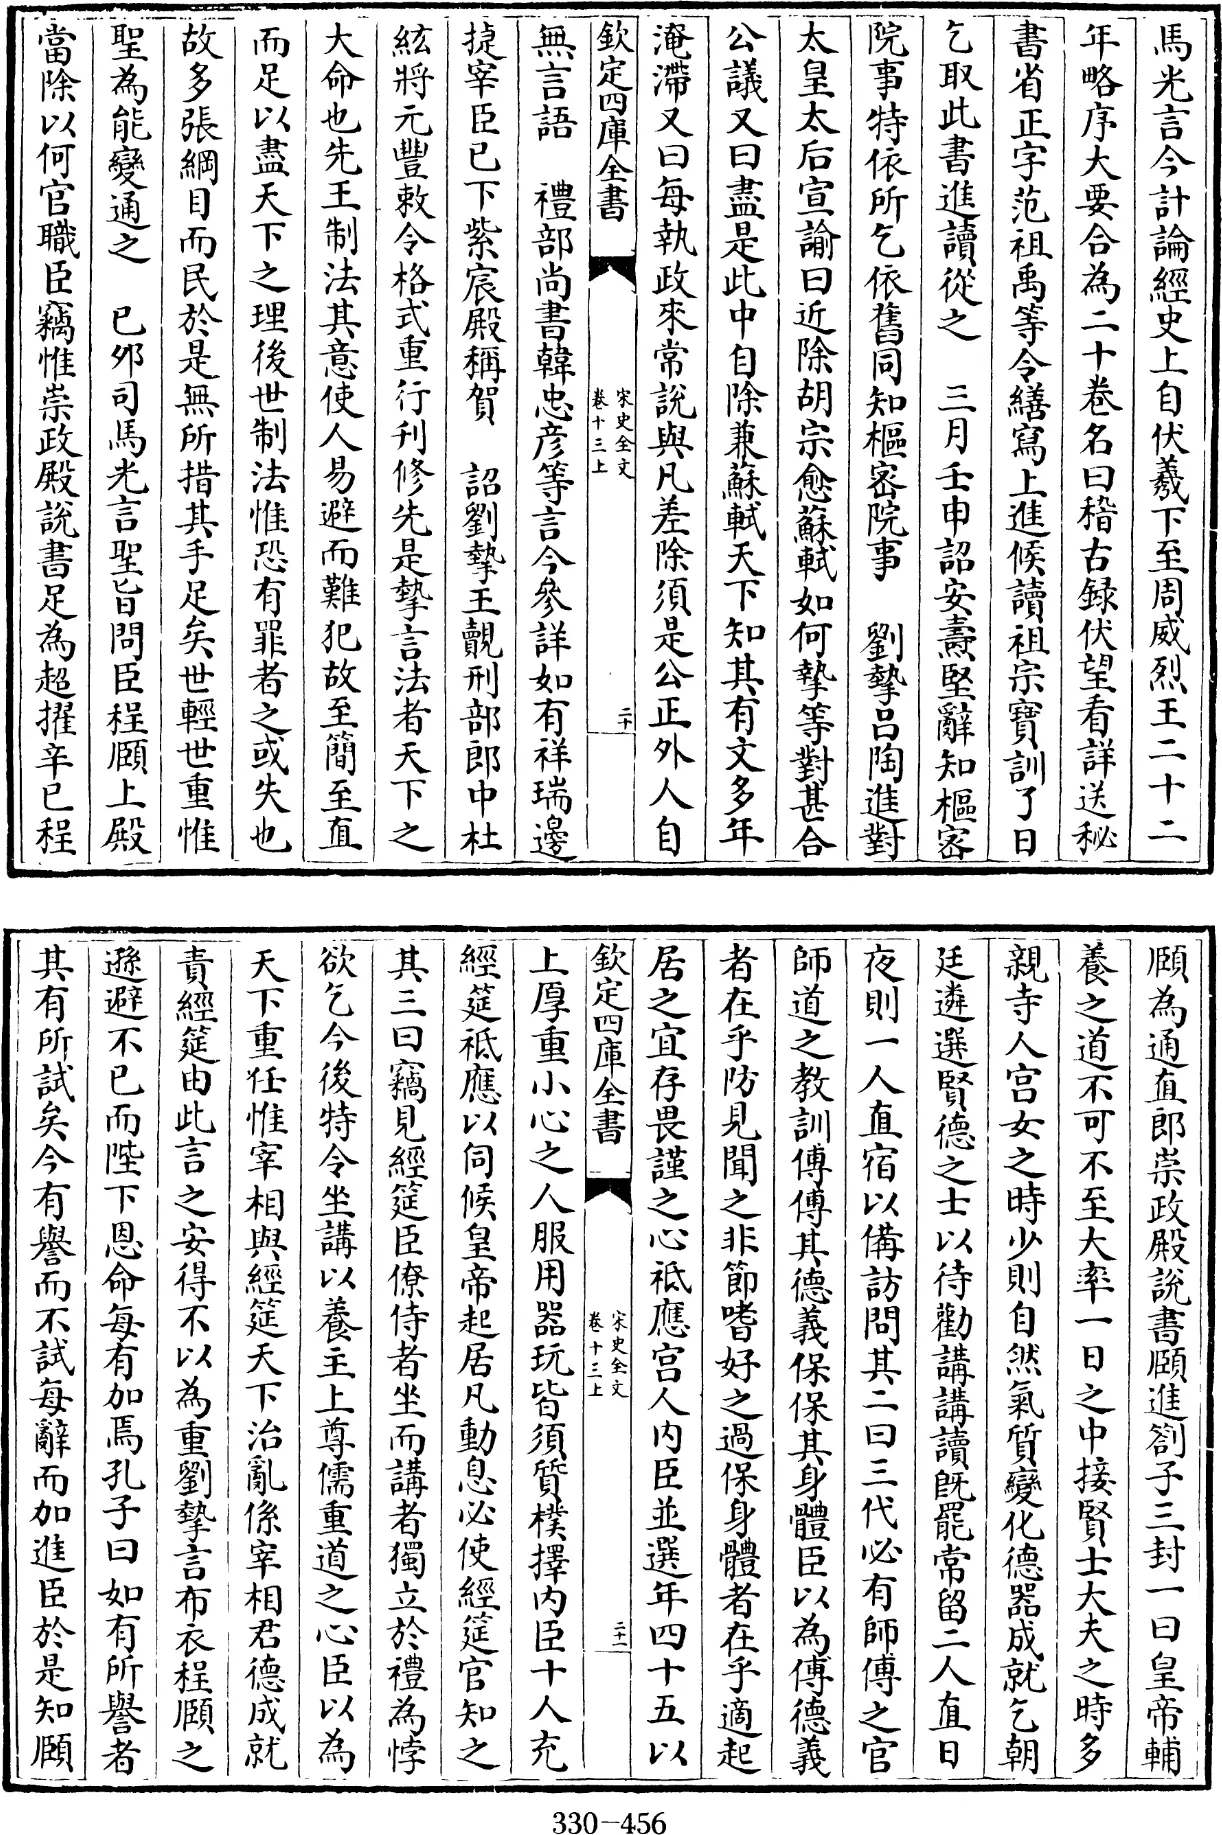 馬光言今計論經史上自伏羲下至周威烈王二十二
年略序大要合為二十卷名曰稽古録伏望看詳送秘
書省正字范祖禹等令繕寫上進候讀祖宗寶訓了日
乞取此書進讀從之　三月壬申詔安燾堅辭知樞密
院事特依所乞依舊同知樞密院事　劉摯吕陶進對
太皇太后宣諭曰近除胡宗愈蘇軾如何摯等對甚合
公議又曰盡是此中自除兼蘇軾天下知其有文多年
淹滯又曰每執政來常說與凡差除須是公正外人自
欽定四庫全書
宋史全文
卷十三上
二十
無言語　禮部尚書韓忠彦等言今參詳如有祥瑞邊
捷宰臣已下紫宸殿稱賀　詔劉摯王覿刑部郎中杜
紘將元豐敕令格式重行刋修先是摯言法者天下之
大命也先王制法其意使人易避而難犯故至簡至直
而足以盡天下之理後世制法惟恐有罪者之或失也
故多張綱目而民於是無所措其手足矣世輕世重惟
聖為能變通之　已夘司馬光言聖旨問臣程頤上殿
當除以何官職臣竊惟崇政殿說書足為超擢辛已程
頤為通直郎崇政殿說書頤進劄子三封一曰皇帝輔
養之道不可不至大率一日之中接賢士大夫之時多
親寺人宫女之時少則自然氣質變化德器成就乞朝
廷遴選賢德之士以待勸講講讀既罷常留二人直日
夜則一人直宿以備訪問其二曰三代必有師傅之官
師道之教訓傅傅其德義保保其身體臣以為傅德義
者在乎防見聞之非節嗜好之過保身體者在乎適起
居之宜存畏謹之心祗應宫人内臣並選年四十五以
欽定四庫全書
宋史全文
卷十三上
二十一
上厚重小心之人服用器玩皆須質樸擇内臣十人充
經筵祗應以伺候皇帝起居凡動息必使經筵官知之
其三曰竊見經筵臣僚侍者坐而講者獨立於禮為悖
欲乞今後特令坐講以養主上尊儒重道之心臣以為
天下重任惟宰相與經筵天下治亂係宰相君德成就
責經筵由此言之安得不以為重劉摯言布衣程頤之
遜避不已而陛下恩命每有加焉孔子曰如有所譽者
其有所試矣今有譽而不試每辭而加進臣於是知頤
330-456